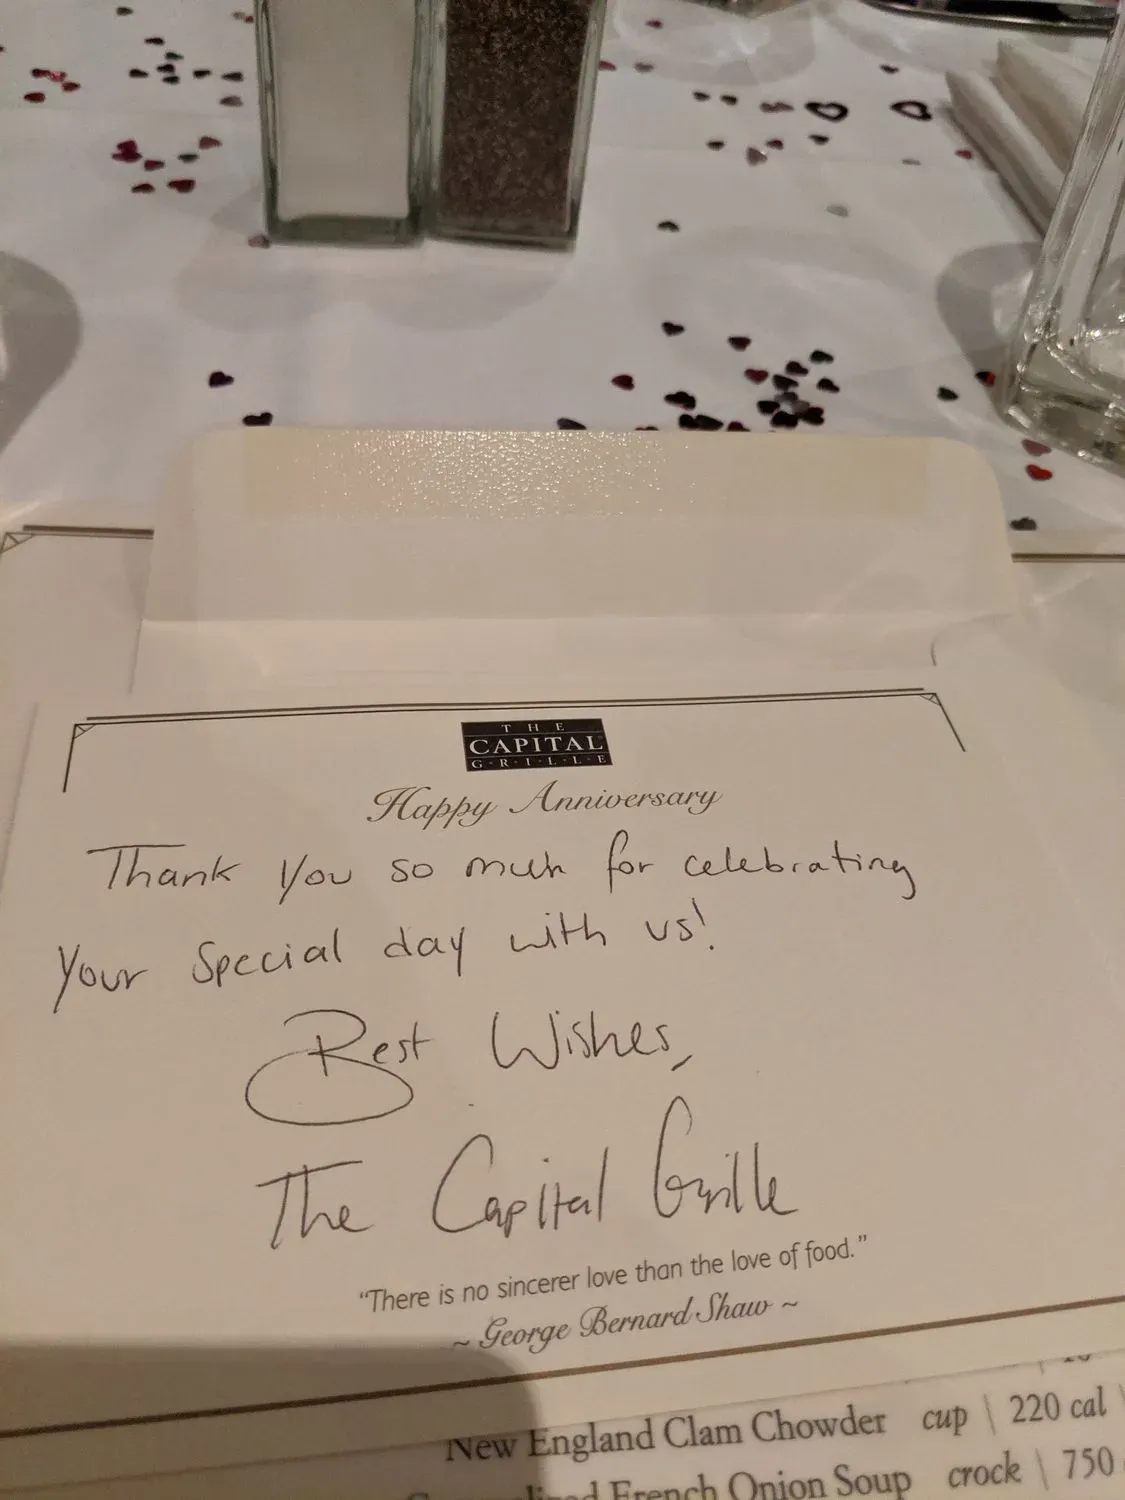 THE
CAPITAL
G·R·I·L·L·E
Happy Anniversary
Thank you so much for celebrating
your special day with us!
Best Wishes,
The Capital Grille
“There is no sincerer love than the love of food.”
~ George Bernard Shaw ~
New England Clam Chowder cup | 220 cal
French Onion Soup crock | 750